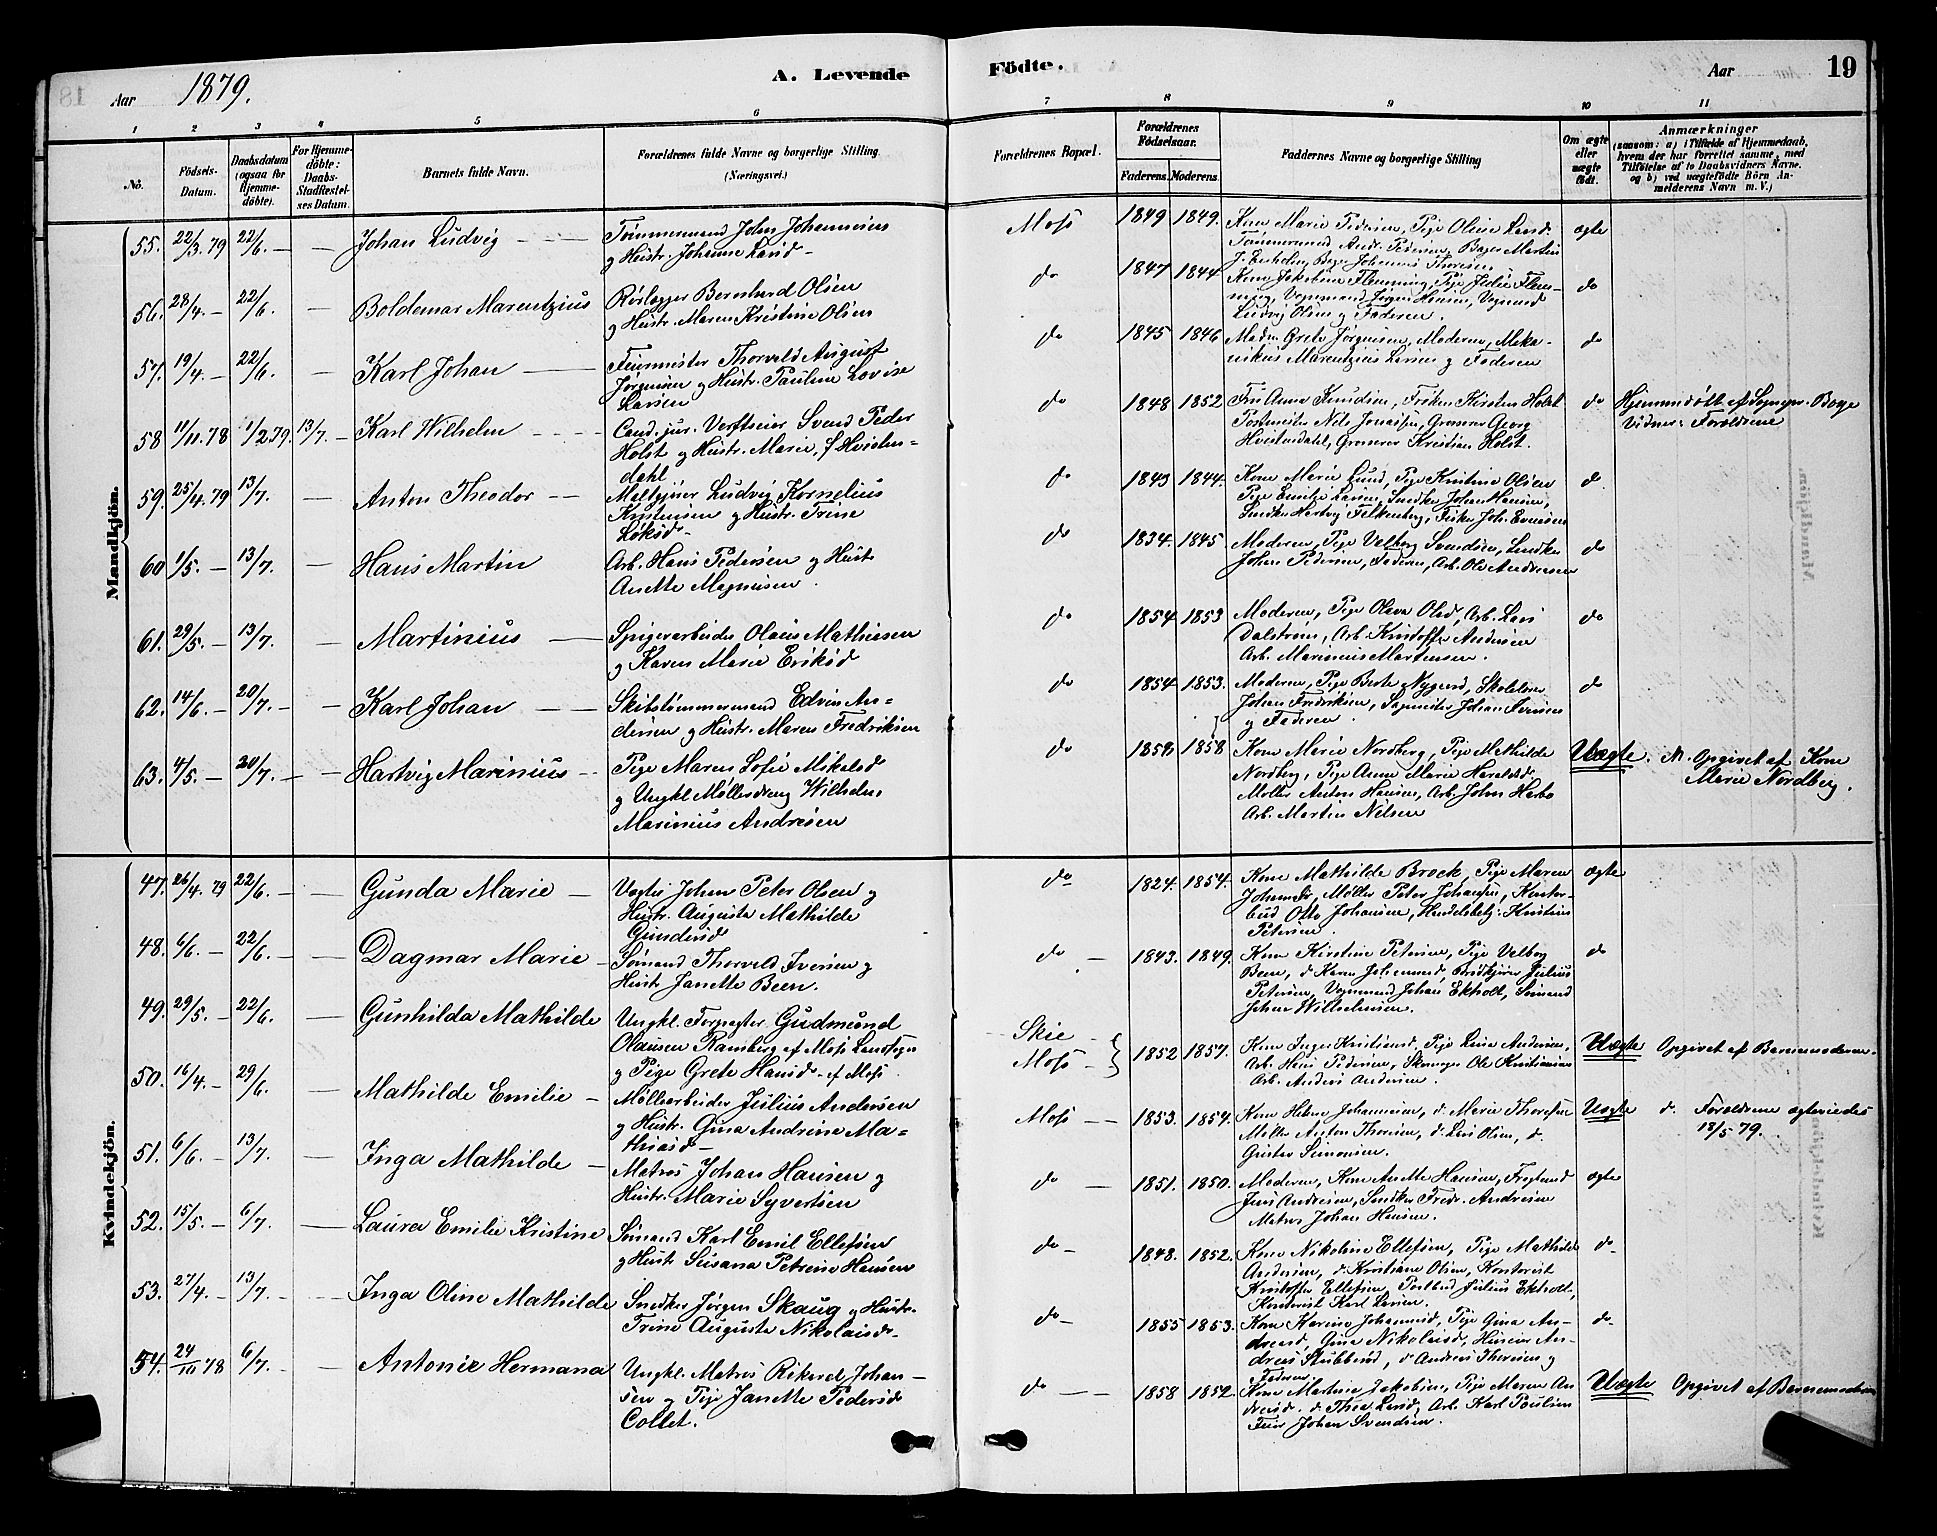 Aar 1879. A. Levende Födte. Aar 19
1 2 3 4 5 6 7 8 9 10 11
No. Födsels-Datum. Daabsdatum (ogsaa for Hjemmedöbte). For Hjemmedöbte: Daabs-Stadfestelses Datum. Barnets fulde Navn. Forældrenes fulde Navne og borgerlige Stilling (Næringsvei.) Forældrenes Bopæl. Forældrenes Födselsaar. Faderens. Moderens. Faddernes Navne og borgerlige Stilling Om ægte eller uægte födt. Anmærkninger
(saasom: a) i Tilfælde af Hjemmedaab,
hvem der har forrettet samme, med
Tilføielse af to Daabsvidners Navne.
og b) ved uægtefödte Börn An-
melderens Navn m. V.)
Mandkjön.
55. 22/3. 79 22/6. — — Johan Ludvig — Tømmermand John Johannesen
og Hustr. Johanne Lund
Moss 1849 1849. Kone Marie Pedersen, Pige Oline Lund ægte
Tømmermand Andr. Pedersen, Bager Martin
56. 28/4. — 22/6. — Boldemar Marentzius Rørlægger Bernhard Olsen
og Hustr. Maren Kristine Olsen
do 1847 1844 Kone Jakobine Flemming, Pige
Ludvig Olsen og Faderen. do
57. 19/4. — 22/6. — Karl Johan — Feiermester Thorvald August
Jørgensen og Hustr. Pauline Lovise
Larsen
do 1845 1846 Madm. Grete Jørgensen, Moderen, Meka-
nikus Marentzius Larsen og Faderen do
58 11/11. 78 1/2 79. 13/7. — Karl Wilhelm — Cand. jur. Verftseier Svend Peder
Holst og Hustr. Marie, f. Hvisten-
dahl
do 1848 1852 Fru Anna Knudsen, Frøken Kirsten Holst
Postmester Nils Jonassen, Grosserer Georg
Hvistendahl, Grosserer Kristian Holst. do Hjemmedøbt af Sognepr. Bege
Vidner: Forældrene
59. 25/4. 79 13/7. — Anton Theodor — Ludvig Kornelius
Kristensen og Hustr. Trine
do 1843 1844. Kone Marie Lund, Pige Kristine Olsen
Pige Emilie Larsen, Snedker Johan Hansen,
Snedker Hartvig Falkenberg, Fisker Joh. Evensen do
60 1/5. — 13/7. — Hans Martin Arb. Hans Pedersen og Hustr
Anette Magnusen.
do 1834. 1845. Moderen, Pige Valborg Svendsen, Snedker
Johan Pedersen, Faderen, Arb. Ole Andreasen do
61. 29/5. — 13/7. — Martinius — Spigerarbeider Olaus Mathiesen
og Karen Marie Eriksd
do 1854 1853 Moderen, Pige Olava Olsd, Arb. Lars
Dalstrøm, Arb. Kristoffer Andersen
Arb. Marinius Martinsen. do
62. 14/6. — 20/7. — — Karl Johan — — Skibstømmermand Edvin An-
dersen og Hustr. Maren Fredriksen
do 1854 1853. Moderen, Pige Berte Nygaard, Skolelærer
Johan Fredriksen, Sagmester Johan Iversen
og Faderen. do
63. 4/5. — 20/7. — — Hartvig Marinius — Pige Maren Sofie Mikelsd
og Ungkl Møllerdreng Wilhelm
Marinius Andresen
do 1858 1858 Kone Marie Nordberg, Pige Mathilde
Nordberg, Pige Anne Marie Haraldsd,
Møller Anton Hansen, Arb. John Harbo
Arb. Martin Nilsen Uægte. M. Opgivet af Kone
Marie Nordberg.
Kvindekjön.
47. 26/4. 79 22/6. — — Gunda Marie — Vogter Johan Peter Olsen og
Hustr. Augusta Mathilde
Gundersd
do 1824. 1854. Kone Mathilde Brock, Pige Maren
Johansdr, Møller Peter Johansen, Kontor-
bud Otto Johansen, Handelsbetj. Kristian
Petersen. ægte
48. 6/6. — 22/6. — — Dagmar Marie — Sømand Thorvald Iversen og
Hustr. Janette Been.
do — 1843. 1849. Kone Kirstine Petersen, Pige Valborg
Been, d. Karen Johannesd, Julius
Petersen, Vognmand Johan Ekholt, Sømand
Johan Wilhelmsen. do
49. 29/5. — 22/6. — — Gunhilda Mathilde Ungkl. Forpagter Gudmund
Olausen Ramberg af Moss Landsogn
og Pige Grete Hansd. af Moss
Skie
Moss 1852 1857. Kone Inger Kristiansd, Pige Lina Andersen,
Arb. Hans Pedersen, Skomager Ole Kristiansen
Arb. Anders Andersen. Uægte Opgivet af Barnemoderen.
50. 16/4. — 29/6. — Mathilde Emilie — Møllearbeider Julius Andersen
og Hustr. Gina Andrine Ma-
thiasd
Moss — 1853. 1854. Kone Helene Johannesen, d. Marie Thoresen
Møller Anton Thoresen, d. Lars Olsen, d.
Gustav Simonsen. Uægte d. Forældrene ægteviedes
18/5 79.
51. 6/6. — 13/7. — — Inga Mathilde — Matros Johan Hansen og
Hustr. Marie Syvertsen
do — 1851. 1850. Moderen, Kone Anette Hansen,
Jens Andresen, Snedker Fredr. Andresen
Matros Johan Hansen. ægte
52. 15/5. — 6/7. — — Laura Emilie Kristine Sømand Karl Emil Ellefsen
og Hustr Susana Petrine Hansen
do — 1848. 1852. Kone Nikoline Ellefsen, Pige Mathilde
Andersen, d. Kristiane Olsen, Kontorist
Kristoffer Ellefsen, Postbud Julius Ekholt,
Kontorist Karl Larsen. do
53. 27/4. — 13/7. — — Inga Oline Mathilde Snedker Jørgen Skaug og Hustr.
Trine Augusta Nikolaisdr.
do — 1855 1853. Kone Karine Johannesd, Pige Gina An-
dreasd, Gina Nikolaisd, Huseier An-
dreas Stubberud, d. Andreas Thoresen og
Faderen. do
54. 24/10 78 6/7. — — Antonie Hermana Ungkl. Matros Rikard Johan-
sen og Pige Janette Pedersd
Collet.
do — — 1858 1852 Kone Martine Jakobsen, Pige Maren An-
dreasd. d. Thea Larsd, Arb. Karl Poulsen
Feier Johan Svendsen. Uægte Opgivet af Barnemoderen